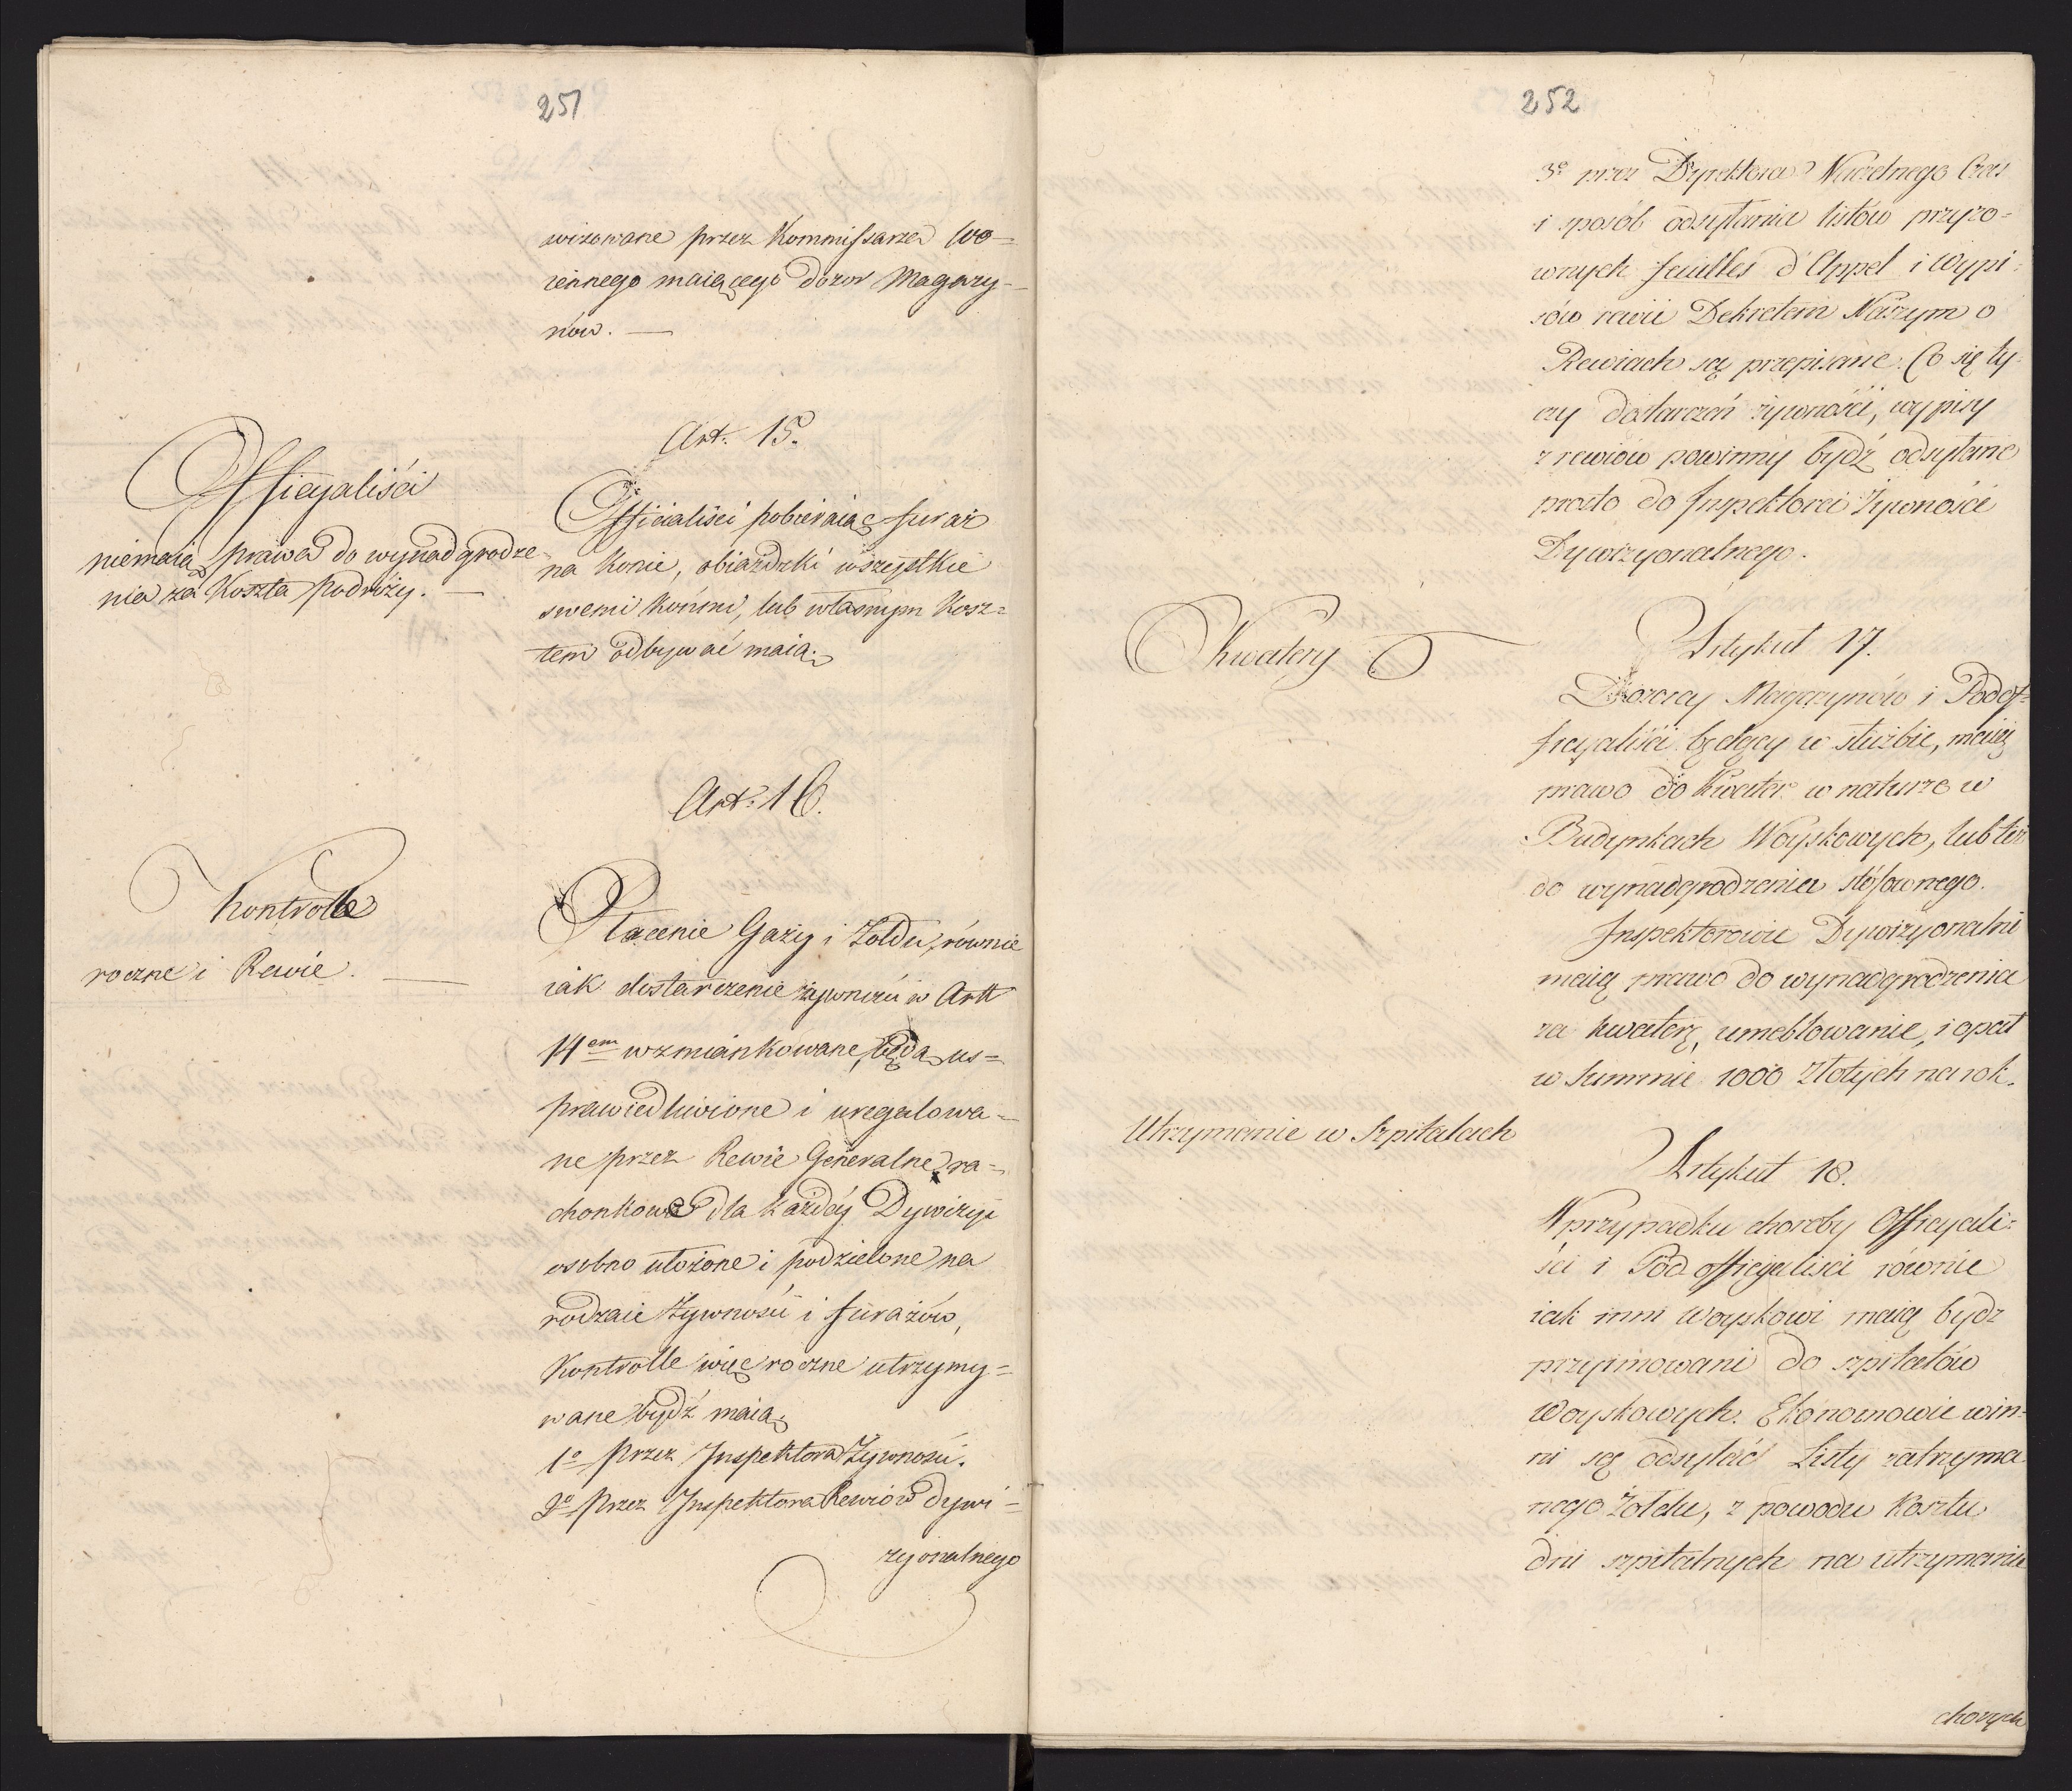 251
wizowane przez Kommissarza Wo-
iennego maiącego dozor Magazy-
nów. —
Art. 15.
Officyaliści
niemaią prawa do wynadgrodze
nia za Koszta podróży. —
Officialiści pobieraiąc furaż
na konie, obiazdzki wszystkie
swemi końmi, lub własnym Kosz-
tem odbywać maią.
Art. 16.
Kontrolle
roczne i Rewie. —
Płacenie Gaży i Żołdu, równie
iak dostarczenie żywności w Artt
14em wzmiankowane, będą us-
prawiedliwione i uregulowa-
ne przez Rewie Generalne ra-
chonkowe dla każdéy Dywizyi
osobno ułożone i podzielone na
rodzaie żywności i furażów,
Kontrolle więc roczne utrzymy-
wane bydź maią
1o przez Inspektora Żywności.
2o przez Inspektora Rewiów dywi-
zyonalnego
252
3o przez Dyrektora Naczelnego Czas
i sposób odsyłania listów przyzo-
wnych feuilles d'Appel i Wypi-
sów rewii Dekretem Naszym o
Rewiach są przepisane. Co się ty-
czy dostarczeń żywności, wypisy
z rewiów powinny bydź odsyłane
prosto do Inspektora Żywności
Dywizyonalnego.
Kwatery
Artykuł 17.
Dozorcy Magazynów i Podof-
ficyaliści będący w służbie, maią
prawo do Kwater w naturze w
Budynkach Woyskowych, lub też
do wynadgrodzenia stósownego.
Inspektorowie Dywizyonalni
maią prawo do wynadgrodzenia
za kwaterę, umeblowanie, i opał
w Summie 1000 Złotych na rok.
Utrzymanie w Szpitalach
Artykuł 18.
W przypadku choroby Officyali-
ści i Pod officyaliści równie
iak inni Woyskowi maią bydz
przyimowani do szpitalów
Woyskowych. Ekonomowie win-
ni są odsyłać Listy zatrzyma
nego Żołdu, z powodu Kosztu
dni szpitalnych na utrzymanie
chorych